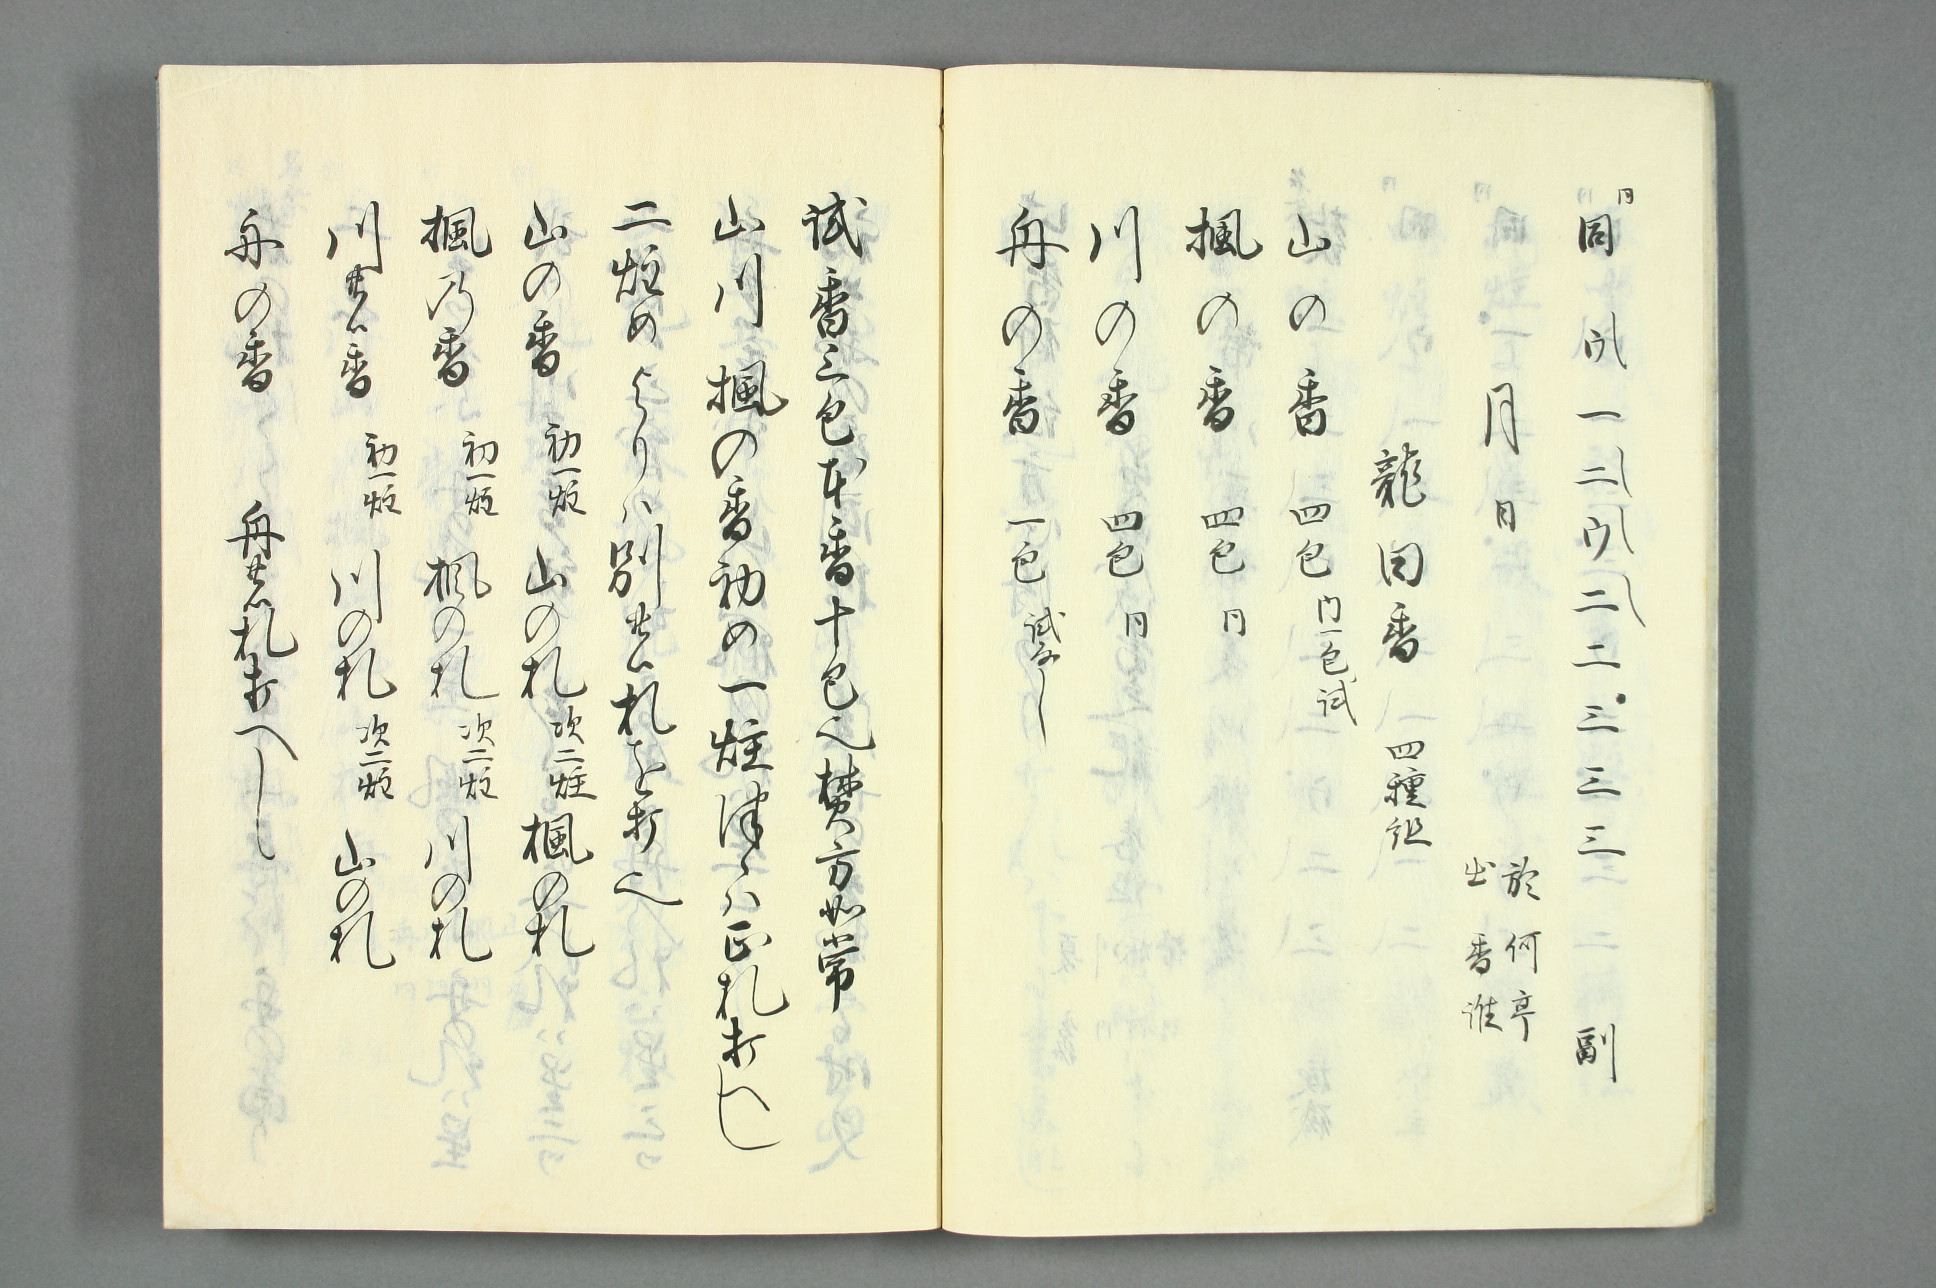 同
同 ウ 一 二 ウ 二 二 三 三 三 副
月 日
於何亭
出香誰
龍田香 四種組
山の香 四包 内一包試
楓の香 四包 同
川の香 四包 同
舟の香 一包 試なし
試香三包本香十包也焚方如常
山川楓の香初の一炷
ハ正札打へし
二炷めよりハ別
札を打也
山の香 初一炷 山の札 次二炷 楓の札
楓乃香 初一炷 楓の札 次二炷 川の札
川
香 初一炷 川の札 次二炷 山の札
舟の香 舟
札打へし